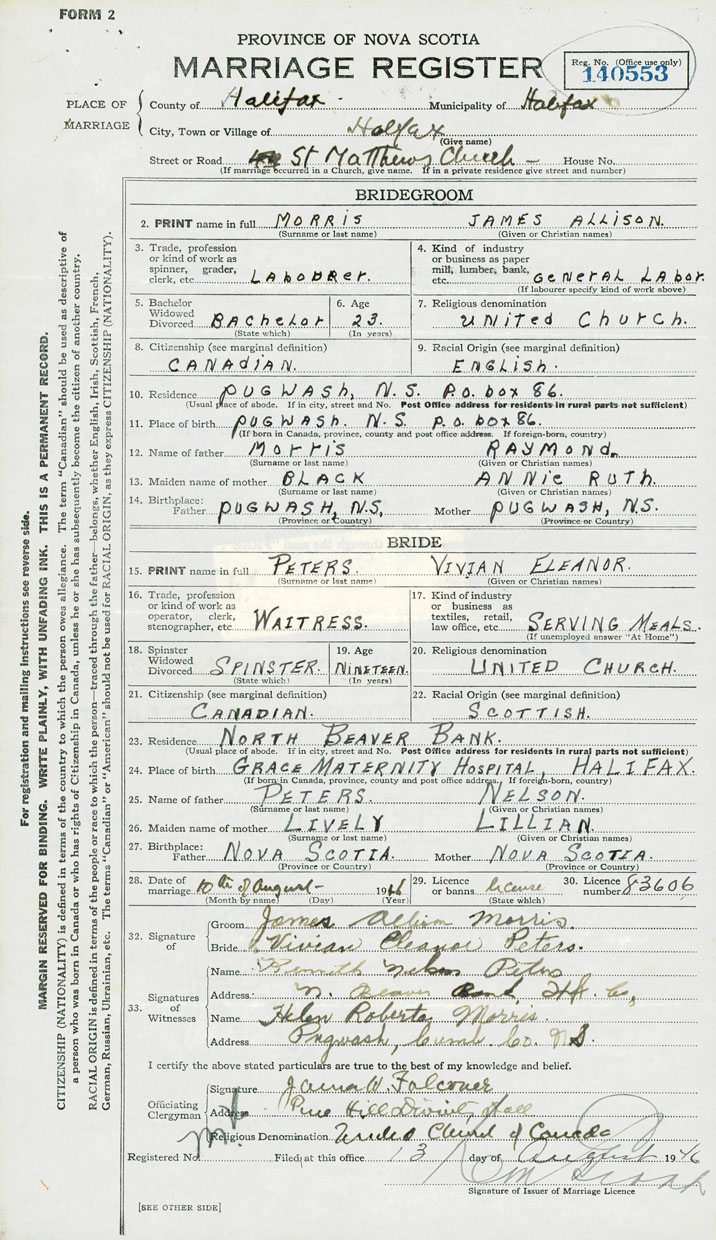 FORM 2
PROVINCE OF NOVA SCOTIA
MARRIAGE REGISTER
Reg. No. (Office use only)
140553
PLACE OF MARRIAGE
County of Halifax Municipality of Halifax
City, Town or Village of Halifax
(Give name)
Street or Road St Matthews Church – House No.
(If marriage occurred in a Church, give name. If in a private residence give street and number)
BRIDEGROOM
2. PRINT name in full MORRIS JAMES ALLISON.
(Surname or last name) (Given or Christian names)
3. Trade, profession or kind of work as spinner, grader, clerk, etc. LABOURER.
4. Kind of industry or business as paper mill, lumber, bank, etc. General Labor.
(If labourer specify kind of work above)
5. Bachelor Widowed Divorced BACHELOR
(State which)
6. Age 23.
(In years)
7. Religious denomination UNITED CHURCH.
8. Citizenship (see marginal definition) CANADIAN.
9. Racial Origin (see marginal definition) ENGLISH.
10. Residence PUGWASH, N.S. P.O. box 86.
(Usual place of abode. If in city, street and No. Post Office address for residents in rural parts not sufficient)
11. Place of birth PUGWASH. N.S. P.O. box 86.
(If born in Canada, province, county and post office address. If foreign-born, country)
12. Name of father MORRIS RAYMOND.
(Surname or last name) (Given or Christian names)
13. Maiden name of mother BLACK ANNIE RUTH.
(Surname or last name) (Given or Christian names)
14. Birthplace: Father PUGWASH, N.S, Mother PUGWASH, N.S.
(Province or Country) (Province or Country)
BRIDE
15. PRINT name in full PETERS. VIVIAN ELEANOR.
(Surname or last name) (Given or Christian names)
16. Trade, profession or kind of work as operator, clerk, stenographer, etc. WAITRESS.
17. Kind of industry or business as textiles, retail, law office, etc. SERVING MEALS.
(If unemployed answer "At Home")
18. Spinster Widowed Divorced SPINSTER.
(State which)
19. Age NINETEEN.
(In years)
20. Religious denomination UNITED CHURCH.
21. Citizenship (see marginal definition) CANADIAN.
22. Racial Origin (see marginal definition) SCOTTISH.
23. Residence NORTH BEAVER BANK.
(Usual place of abode. If in city, street and No. Post Office address for residents in rural parts not sufficient)
24. Place of birth GRACE MATERNITY HOSPITAL, HALIFAX.
(If born in Canada, province, county and post office address. If foreign-born, country)
25. Name of father PETERS. NELSON.
(Surname or last name) (Given or Christian names)
26. Maiden name of mother LIVELY LILLIAN.
(Surname or last name) (Given or Christian names)
27. Birthplace: Father NOVA SCOTIA. Mother NOVA SCOTIA.
(Province or Country) (Province or Country)
28. Date of marriage 10th of August– 1946
(Month by name) (Day) (Year)
29. Licence or banns license
(State which)
30. Licence number 83606
32. Signature of
Groom James Allison Morris.
Bride Vivian Eleanor Peters.
33. Signatures of Witnesses
Name Kenneth Nelson Peters
Address N. Beaver Bank Hfx. Co,
Name Helen Roberta Morris.
Address Pugwash, Cumb Co. N S
I certify the above stated particulars are true to the best of my knowledge and belief.
Officiating Clergyman
Signature James W. Falconer
Address Pine Hill Divinity Hall
Religious Denomination United Church of Canada
Registered No. Filed at this office 13 day of August 1946
Signature of Issuer of Marriage Licence
[SEE OTHER SIDE]
For registration and mailing instructions see reverse side.
MARGIN RESERVED FOR BINDING. WRITE PLAINLY, WITH UNFADING INK. THIS IS A PERMANENT RECORD.
CITIZENSHIP (NATIONALITY) is defined in terms of the country to which the person owes allegiance. The term "Canadian" should be used as descriptive of
a person who was born in Canada or who has rights of Citizenship in Canada, unless he or she has subsequently become the citizen of another country.
RACIAL ORIGIN is defined in terms of the people or race to which the person—traced through the father—belongs, whether English, Irish, Scottish, French,
German, Russian, Ukrainian, etc. The terms "Canadian" or "American" should not be used for RACIAL ORIGIN, as they express CITIZENSHIP (NATIONALITY).